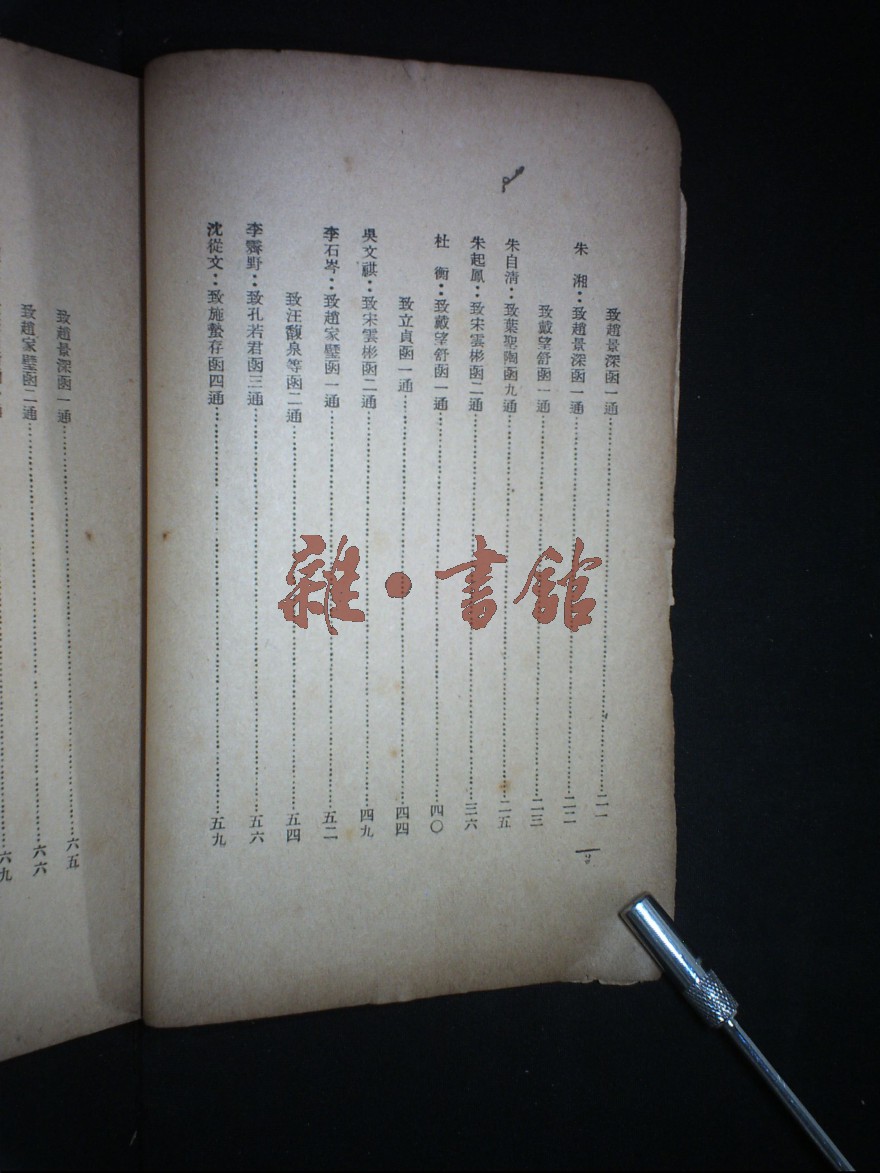 致趙景深函一通……二一
朱　湘：致趙景深函一通……二二
致戴望舒函一通……二三
朱自清：致葉聖陶函九通……二五
朱起鳳：致宋雲彬函二通……三六
杜　衡：致戴望舒函一通……四〇
致立貞函一通……四四
吳文祺：致宋雲彬函二通……四九
李石岑：致趙家璧函一通……五二
致汪馥泉等函二通……五四
李霽野：致孔若君函三通……五六
沈從文：致施蟄存函四通……五九
致趙景深函一通……六五
致趙家璧函二通……六六
六九
雜·書館